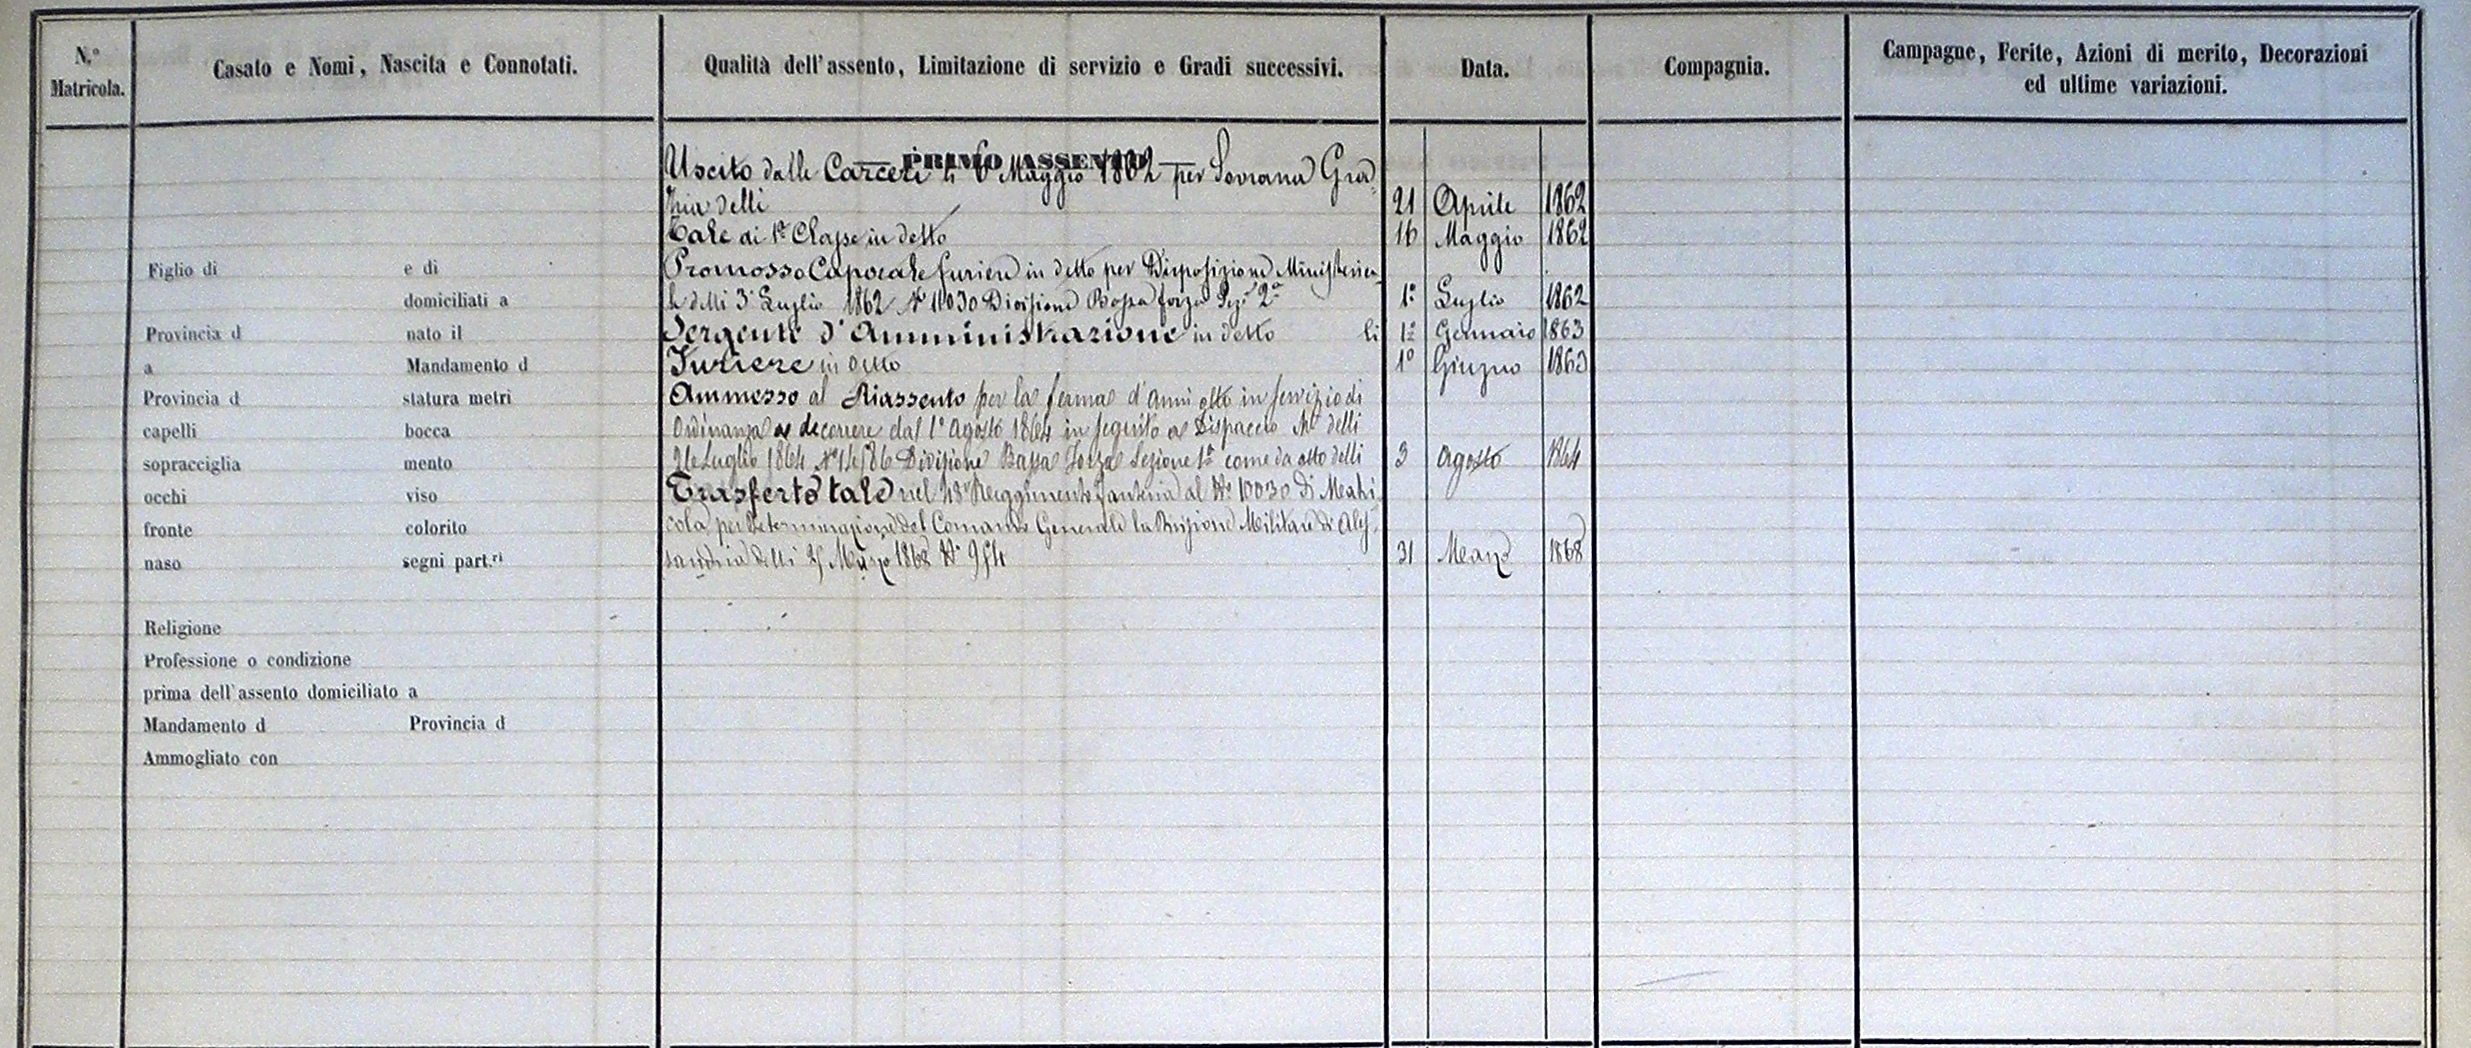 N.º Matricola.
Casato e Nomi, Nascita e Connotati.
Qualità dell'assento, Limitazione di servizio e Gradi successivi.
Data.
Compagnia.
Campagne, Ferite, Azioni di merito, Decorazioni
ed ultime variazioni.
— PRIMO ASSENTO —
Uscito dalle Carceri li 6 Maggio 1862 per Sovrana Gra-
zia delli 21 Aprile 1862
Tale di 1ª Classe in detto 16 Maggio 1862
Figlio di e di
Promosso Caporale furiere in detto per Disposizione Ministeria-
domiciliati a
le delli 3 Luglio 1862 Nº 11030 Divisione Bassa forza Sezne 2ª 1º Luglio 1862
Provincia d nato il
Sergente d'Amministrazione in detto li 1º Gennaio 1863
a Mandamento d
Furiere in detto 1º Giugno 1863
Provincia d statura metri
Ammesso al Riassento per la ferma d'anni otto in servizio di
capelli bocca
Ordinanza a decorrere dal 1º Agosto 1864 in seguito a Dispaccio delli
sopracciglia mento
Luglio 1864 Divisione Bassa Forza Sezione 1ª come da atto delli 3 Agosto 1864
occhi viso
Trasferto tale nel 48º Reggimento fanteria al Nº 10030 di Matri-
fronte colorito
cola per Determinazione del Comando Generale la Divisione Militare di Ales-
naso segni part.ri
sandria delli Marzo 1868 Nº 31 Marzo 1868
Religione
Professione o condizione
prima dell'assento domiciliato a
Mandamento d Provincia d
Ammogliato con